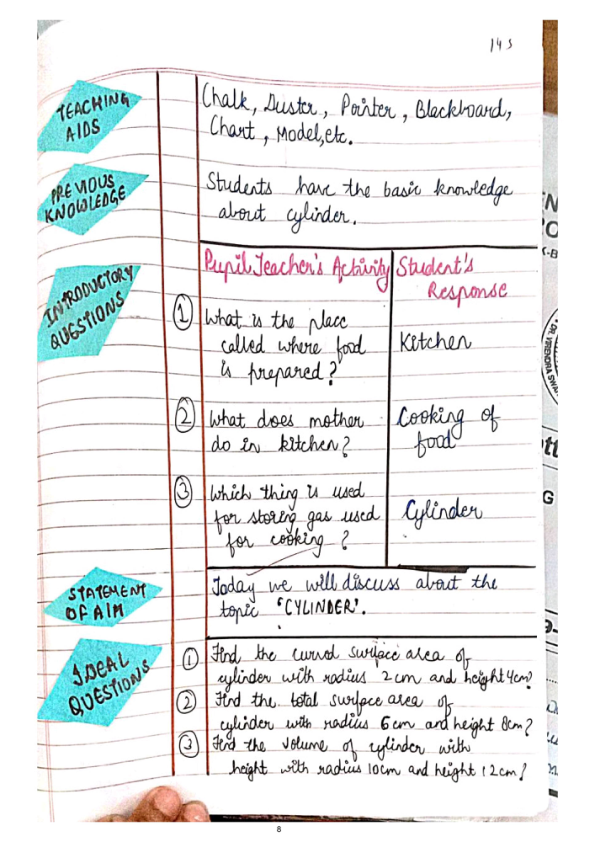 145
TEACHING
AIDS
Chalk, Duster, Pointer, Blackboard,
Chart, Model, etc.
PREVIOUS
KNOWLEDGE
Students have the basic knowledge
about cylinder.
INTRODUCTORY
QUESTIONS
Pupil Teacher's Activity
Student's
Response
① What is the place
called where food
is prepared?
Kitchen
② What does mother
do in kitchen?
Cooking of
food
③ Which thing is used
for storing gas used
for cooking ?
Cylinder
STATEMENT
OF AIM
Today we will discuss about the
topic 'CYLINDER'.
IDEAL
QUESTIONS
① Find the curved surface area of
cylinder with radius 2cm and height 4cm?
② Find the total surface area of
cylinder with radius 6cm and height 8cm?
③ Find the volume of cylinder with
height with radius 10cm and height 12cm?
8